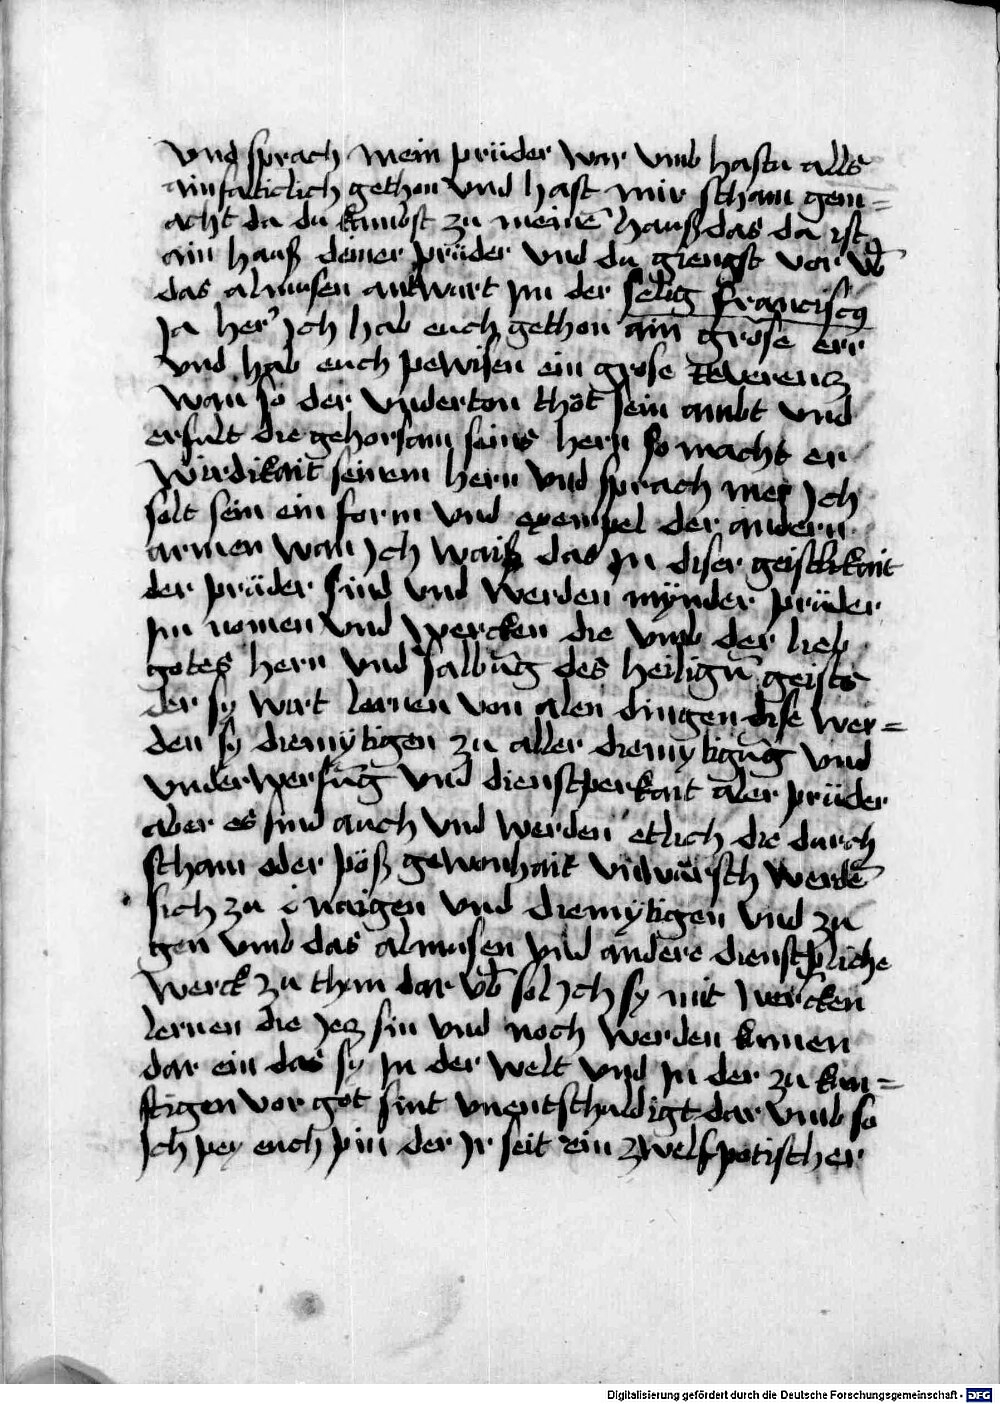 vnd sprach mein prüder war vmb hastu alls
ainfalticlich gethon vnd hast mir scham gem=
acht da du kumbst zu meinē hauß das da ist
ain hauß deiner prüder vnd du giengst vor vb̄
das almusen antwurt im der selig franciscq
Ja her' Ich hab euch gethon ain große err
vnd hab euch pewisen ein grose Reverencz
wan so der vnderton thöt sein ambt vnd
erfult die gehorsam seins hern so macht er
wirdikait seinem hern vnd sprach mer Ich
solt sein ein form vnd exempel der andern
armen wan Ich waiß das in diser geistlikait
der prüder sind vnd werden mynder prüder
im nomen vnd wercken die vmb der lieb
gotes hern vnd salbūg des heiligū geists
der sy wirt lernen von alen dingen dise wer=
den sy diemytigen zu aller diemytigūg vnd
vnderwerfūg vnd dienstperkait aler prüder
aber es sind auch vnd werden etlich die durch
scham oder pöß gewonhait vnwirsch werdē
sich zu naigen vnd diemytigen vnd zu
gen vmb das almusen vnd andere dienstpliche
werck zu thun dar vb̄ sol Ich sy mit wercken
lernen die iecz sin vnd noch werden kumen
dar ein das sy in der welt vnd in der zu kün=
ftigen vor got sint vnentschuldigt dar vmb so
Ich pey euch pin der Ir seit ein zwelfpotischer
Digitalisierung gefördert durch die Deutsche Forschungsgemeinschaft - DFG